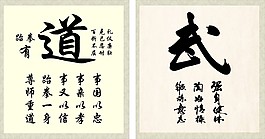 跆拳
有
道
礼仪廉耻
克己忍耐
百折不屈
事国以忠
事父以信
事亲以孝
尊师重道
跆拳一身
武
强身健体
陶冶情操
锻炼意志